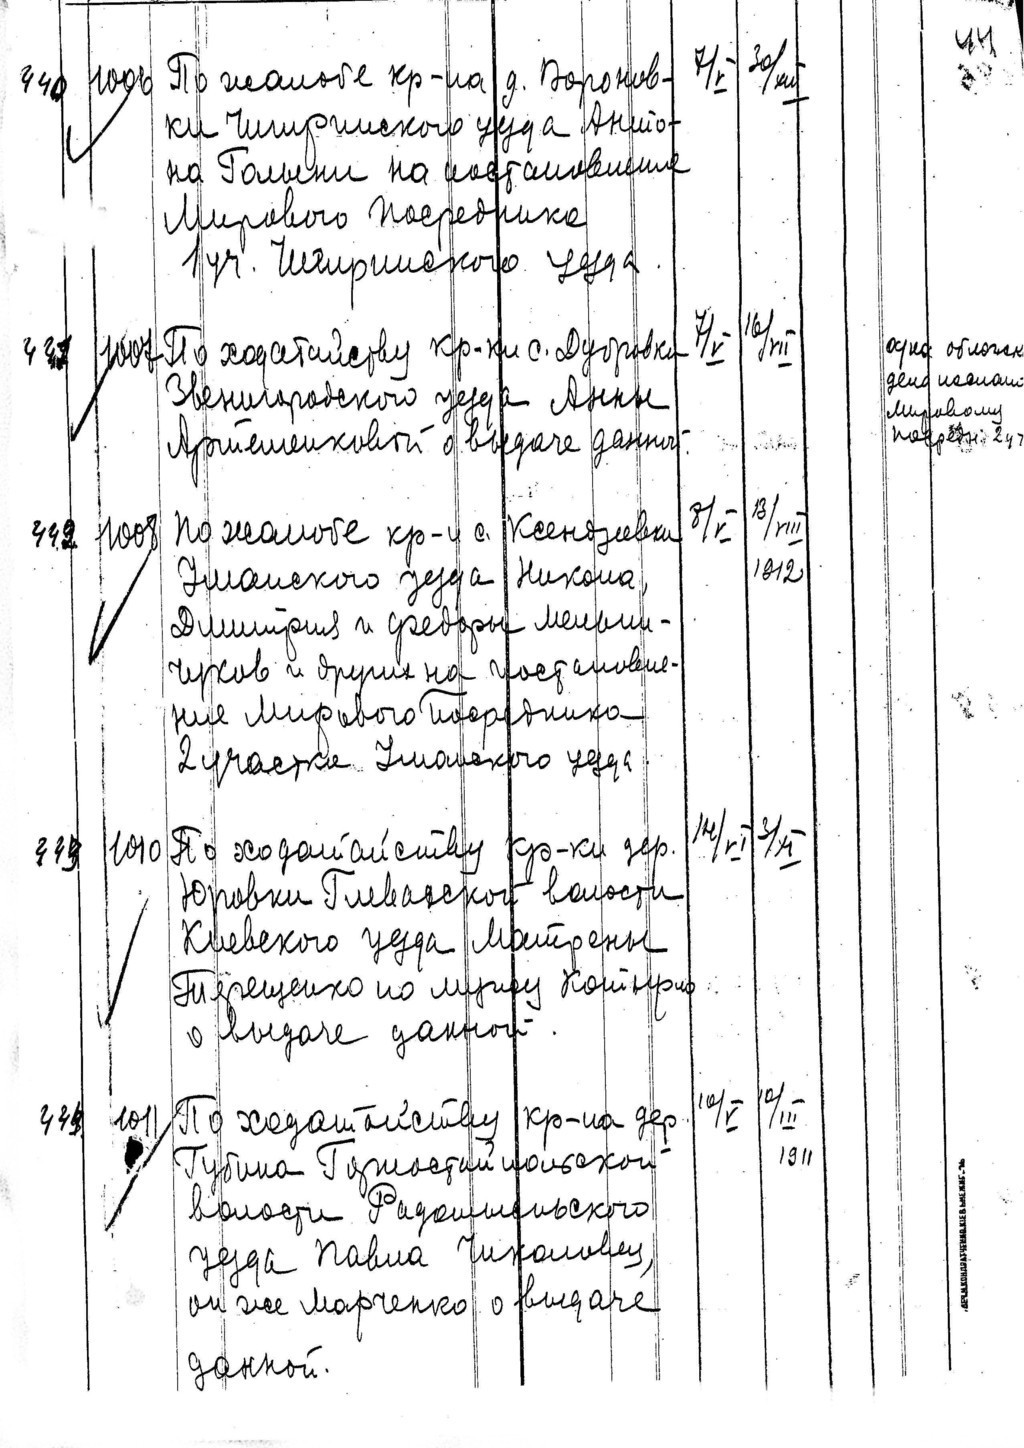 44
440 1006 По жалобе кр-на д. Воронов- 7/V 30/VIII
ки Чигиринского уезда Анто-
на Гольени на постановление
Мирового Посредника
1 уч. Чигиринского уезда.
441 1007 По ходатайству кр-ки с. Дубровки 7/V 16/VII
Звенигородского уезда Анны
Артеменковой о выдаче данной.
одна обложка
дела
Мировому
Посредн. 2 уч
442 1008 По жалобе кр-н с. Ксендзовки 8/V 13/VIII
1912
Уманского уезда Никона,
Дмитрия и Федоры Мельни-
чуков и других на постановле-
ние Мирового Посредника
2 участка Уманского уезда
443 1010 По ходатайству кр-ки дер. 14/VI 3/XI
Юровки Глевахской волости
Киевского уезда Матрены
Терещенко по мужу
о выдаче данной.
1011 По ходатайству кр-на дер. 10/V 10/III
1911
Губина Горностайпольской
волости Радомысльского
уезда Павла Чикаловец,
он же Марченко о выдаче
данной.